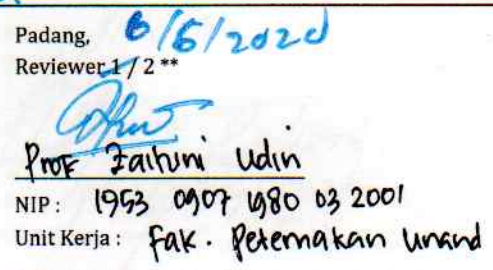 Padang, 6/6/2020
Reviewer 1 / 2 **
Prof Zaituni Udin
NIP : 1953 0907 1980 03 2001
Unit Kerja : Fak. Peternakan Unand